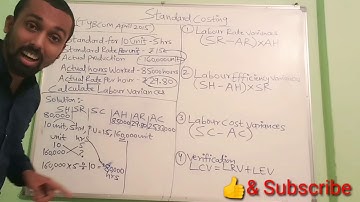 Standard Costing
(TYBCom April 2015)
Standard for 10 Unit - 5 hrs
Standard Rate per unit - ₹15
Actual Production - 160000 units
Actual hours Worked - 85000 hours
Actual Rate per hour - ₹29.80
Calculate Labour Variances
Solution:-
SH SR SC AH AR AC
80,000 85000 29.80
10 unit, 5 hr, ? U = 15, 160,000 unit
10 5
160,000 ?
160,000 × 5 ÷ 10 =
hrs
① Labour Rate Variances
(SR - AR) × AH
② Labour Efficiency Variances
(SH - AH) × SR
③ Labour Cost Variances
(SC - AC)
④ Verification
LCV = LRV + LEV
& Subscribe